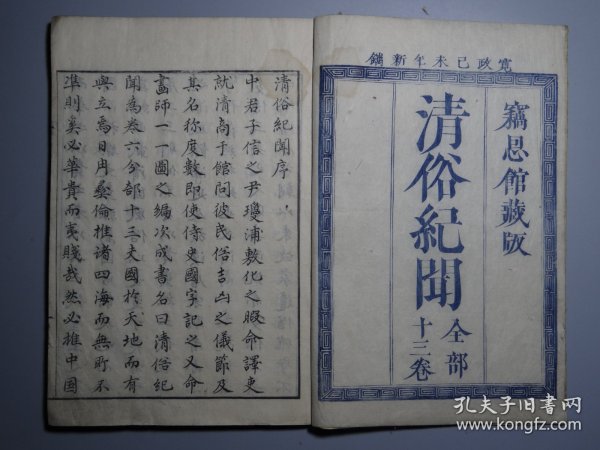 寛政己未年新鐫
竊恩館藏版
清俗紀聞
全部
十三卷
清俗紀聞序
中君子信之尹瓊浦敷化之暇命譯吏
就清商于館問彼民俗吉凶之儀節及
其名称度數即使侍史國字記之又命
畫師一一圖之編次成書名曰清俗紀
聞為卷六分部十三夫國於天地而有
與立焉曰冉彝倫推諸四海而無所不
準則奚必華貴而夷賤哉然必推中國
孔夫子旧书网
www.kongfz.com